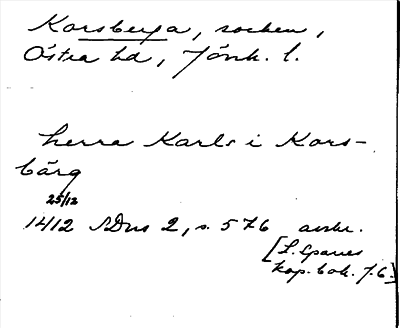 Korsberga, socken,
Östra hd, Jönk. l.
herra Karls i Kors-
bärg
25/12
1412 SDns 2, s. 576 avskr.
[L. Sparres
kop. bok. f. 6.]